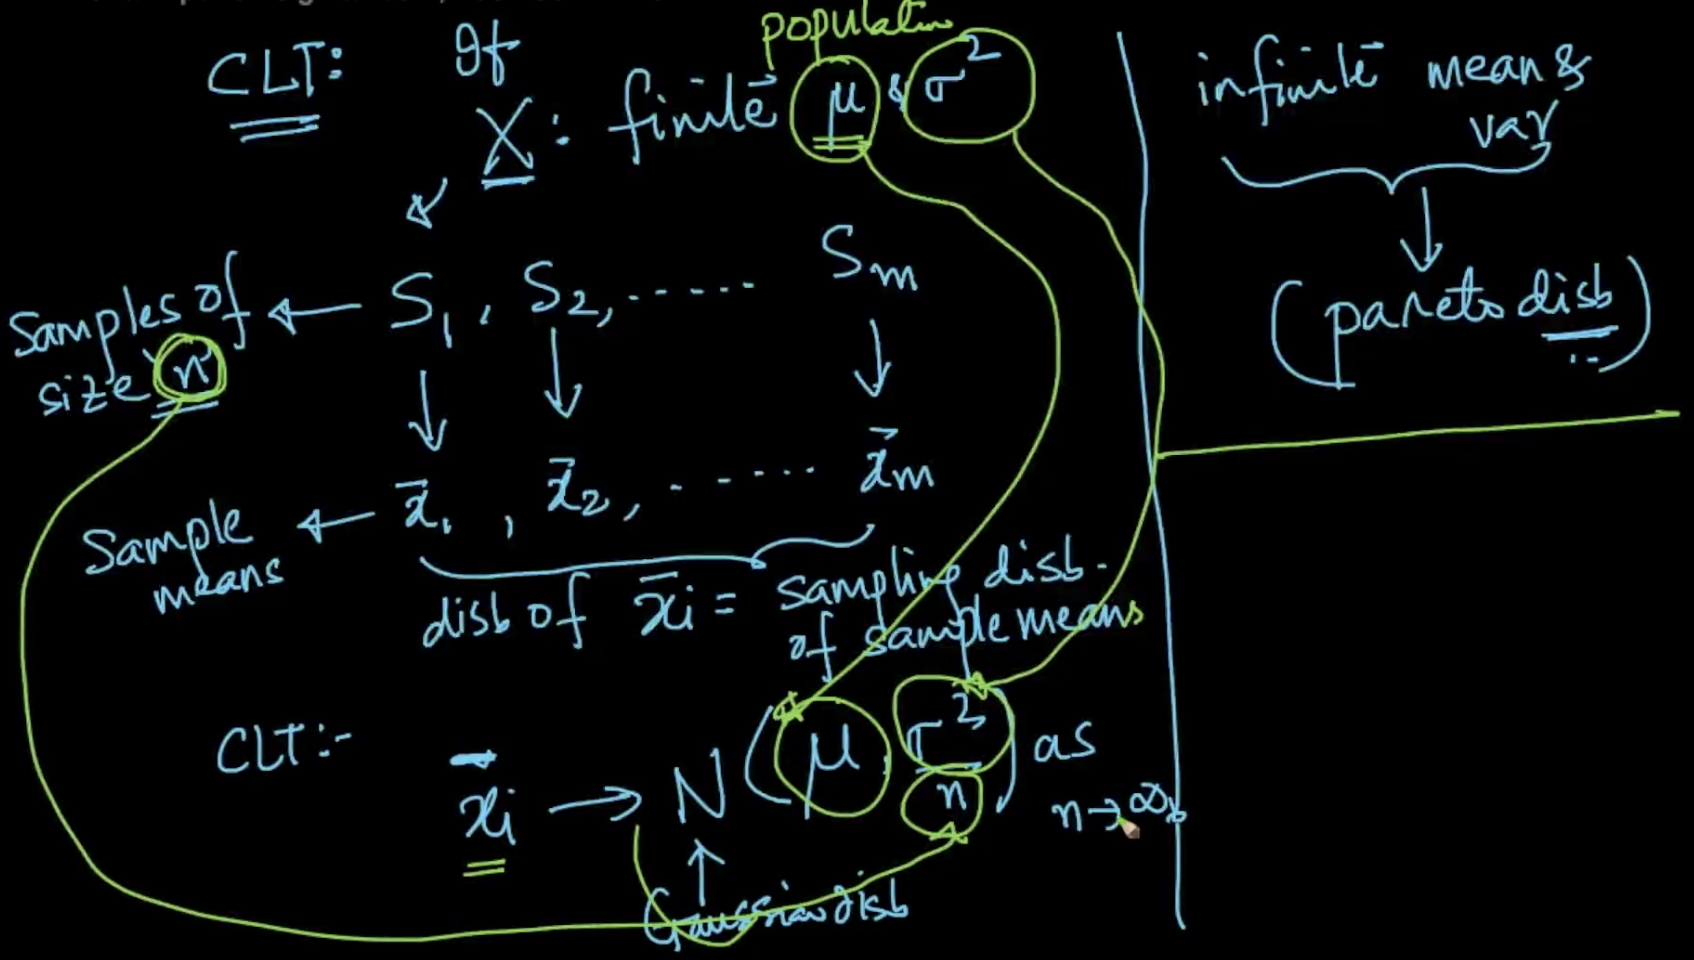 population
CLT: If
X: finite μ & σ²
S₁, S₂, ...... Sₘ
Samples of
size n
x̄₁, x̄₂, ...... x̄ₘ
Sample
means
disb of x̄ᵢ = sampling disb.
of sample means
CLT:- x̄ᵢ → N(μ, σ²/n) as
n→∞
Gaussian disb
infinite mean &
var
(pareto disb)